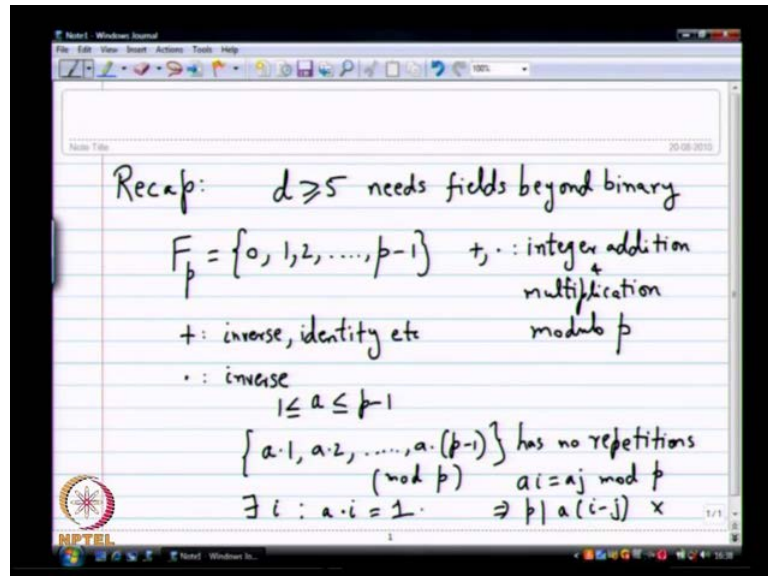 Note1 - Windows Journal
File Edit View Insert Actions Tools Help
100%
Note Title
20-08-2010
Recap: d ≥ 5 needs fields beyond binary
F_p = {0, 1, 2, ....., p-1} +, · : integer addition
& multiplication
modulo p
+ : inverse, identity etc
· : inverse
1 ≤ a ≤ p-1
{a·1, a·2, ......, a·(p-1)} has no repetitions
(mod p) ai = aj mod p
∃ i : a·i = 1. ⇒ p | a(i-j) ×
1/1
1
NPTEL
Note1 - Windows Jo...
16:38